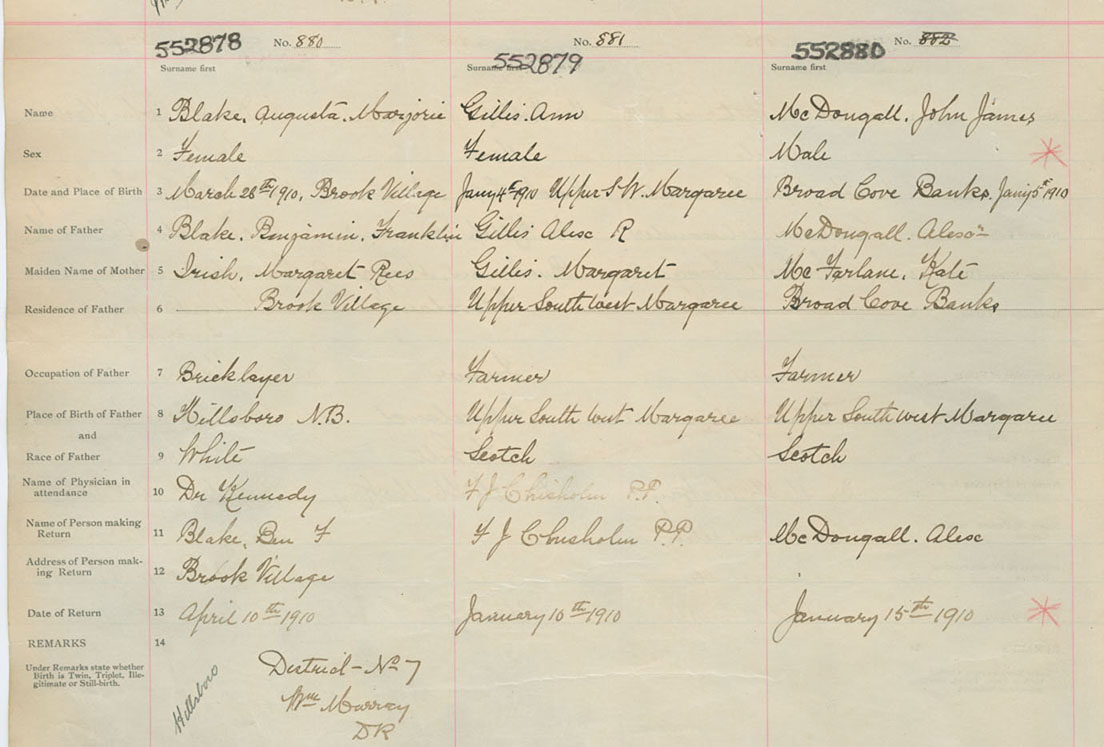 552878 No. 880
Surname first
552879 No. 881
Surname first
552880 No. 882
Surname first
Name 1 Blake, Augusta. Marjorie Gillis. Ann McDougall. John James
Sex 2 Female Female Male
Date and Place of Birth 3 March 28th/1910, Brook Village Jany 4th 1910 Upper S.W. Margaree Broad Cove Banks, Jany 5th 1910
Name of Father 4 Blake, Benjamin, Franklin Gillis Alex R McDougall. Alexr
Maiden Name of Mother 5 Irish, Margaret Rees Gillis. Margaret McFarlane, Kate
Residence of Father 6 Brook Village Upper South west Margaree Broad Cove Banks
Occupation of Father 7 Bricklayer Farmer Farmer
Place of Birth of Father 8 Hillsboro N.B. Upper South west Margaree Upper South west Margaree
and
Race of Father 9 White Scotch Scotch
Name of Physician in
attendance 10 Dr Kennedy F J Chisholm P.P.
Name of Person making
Return 11 Blake, Ben F F J Chisholm P.P. McDougall. Alex
Address of Person mak-
ing Return 12 Brook Village
Date of Return 13 April 10th 1910 January 10th 1910 January 15th 1910
REMARKS 14
Under Remarks state whether
Birth is Twin, Triplet, Ille-
gitimate or Still-birth.
Hillsboro
District - No 7
Wm Murray
DR